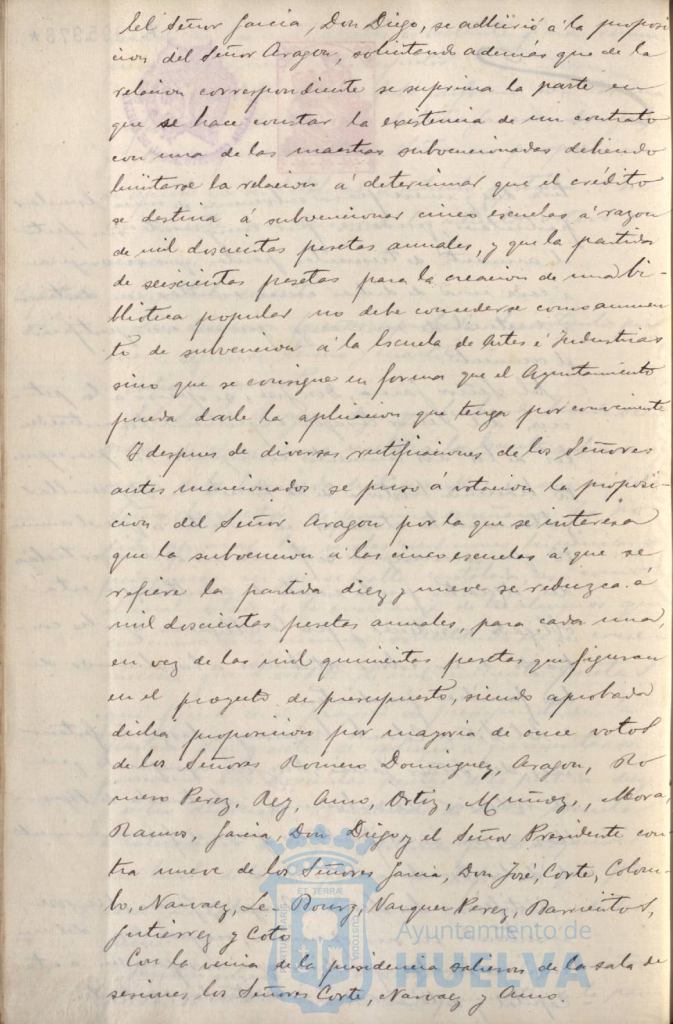 El Señor Garcia, Don Diego, se adhirió á la proposi
cion del Señor Aragon, solicitando además que de la
relacion correspondiente se suprima la parte en
que se hace constar la existencia de un contrato
con una de las maestras subvencionadas debiendo
limitarse la relacion á determinar que el crédito
se destina á subvencionar cinco escuelas á razon
de mil doscientas pesetas anuales, y que la partida
de seiscientas pesetas para la creacion de una bi-
blioteca popular no debe considerse como aumen
to de subvencion á la Escuela de Artes é Industrias
sino que se consigne en forma que el Ayuntamiento
pueda darle la aplicacion que tenga por conveniente
Y despues de diversas rectificaciones de los Señores
antes mencionados se puso á votacion la proposi-
cion del Señor Aragon por la que se interesa
que la subvencion á las cinco escuelas á que se
refiere la partida diez y nueve se reduzca á
mil doscientas pesetas anuales, para cada una,
en vez de las mil quinientas pesetas que figuran
en el proyecto de presupuesto, siendo aprobada
dicha proposicion por mayoria de once votos
de los Señores Romero Dominguez, Aragon, Ro
mero Perez, Rey, Amo, Ortiz, Muñoz, Mora,
Ramos, Garcia, Don Diego y el Señor Presidente con
tra nueve de los Señores Garcia, Don José, Corte, Colom-
bo, Narvaez, Le-Bourg, Vazquez Perez, Barrientos,
Gutierrez y Coto
Con la venia de la presidencia salieron de la sala de
sesiones los Señores Corte, Narvaez y Amo.
Ayuntamiento de
HUELVA